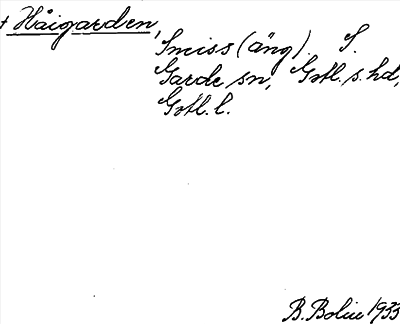 + Håigarden,
Smiss (äng). S.
Garde sn, Gotl. s. hd,
Gotl. l.
B. Bolin 1933